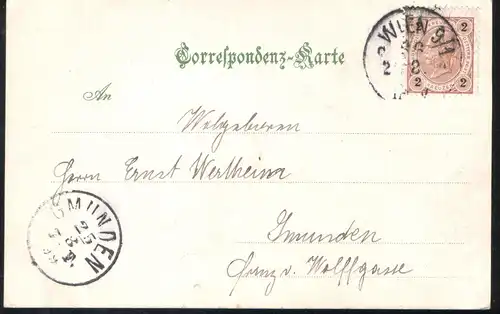 WIEN 9/1
2
2 2
Correspondenz-Karte
An
Wolgeboren
Herrn Ernst Wertheim
GMUNDEN
25
Gmunden
Franz v. Wolffgasse